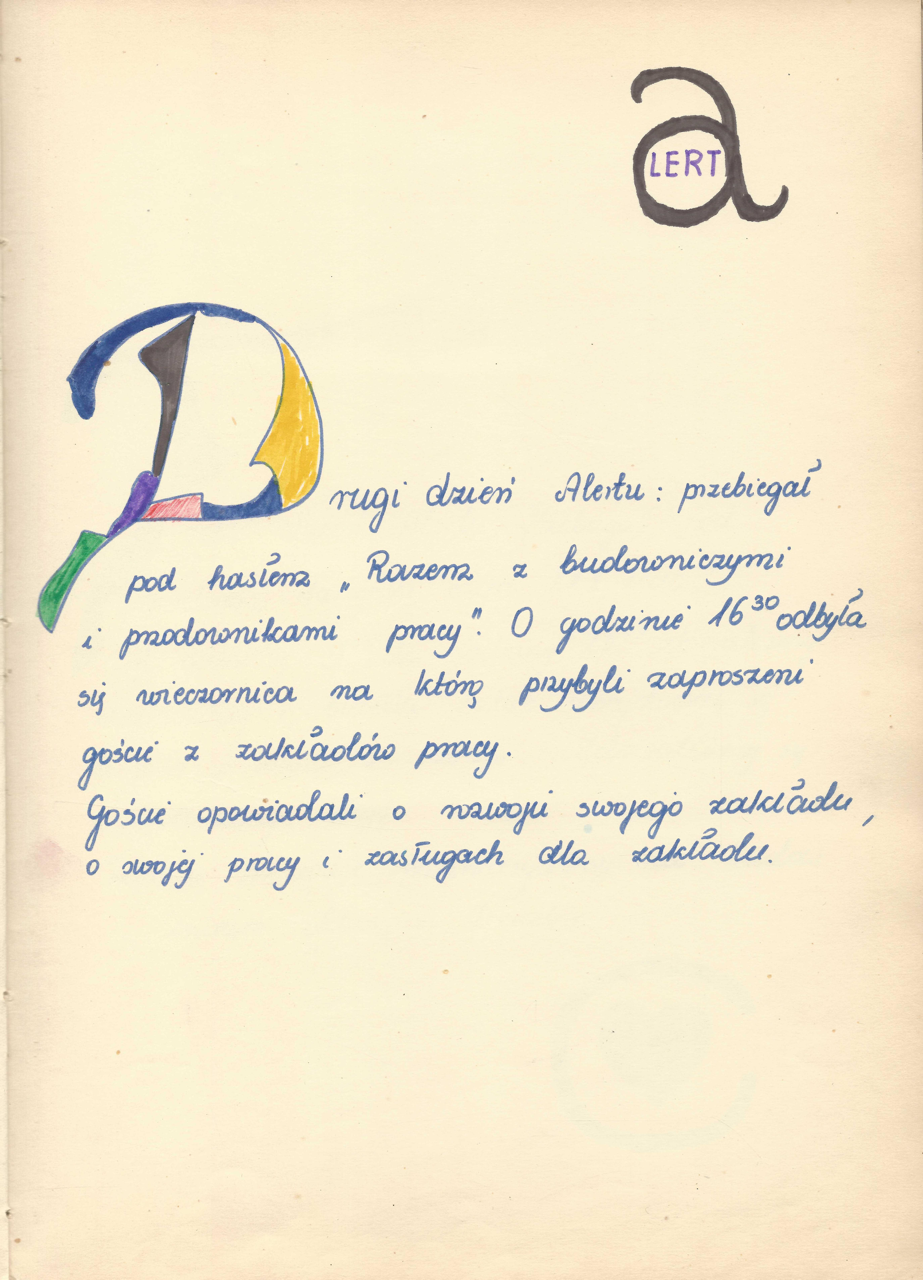 aLERT
Drugi dzień Alertu: przebiegał
pod hasłem „Razem z budowniczymi
i przodownikami pracy". O godzinie 16³⁰ odbyła
się wieczornica na którą przybyli zaproszeni
goście z zakładów pracy.
Goście opowiadali o rozwoju swojego zakładu,
o swojej pracy i zasługach dla zakładu.